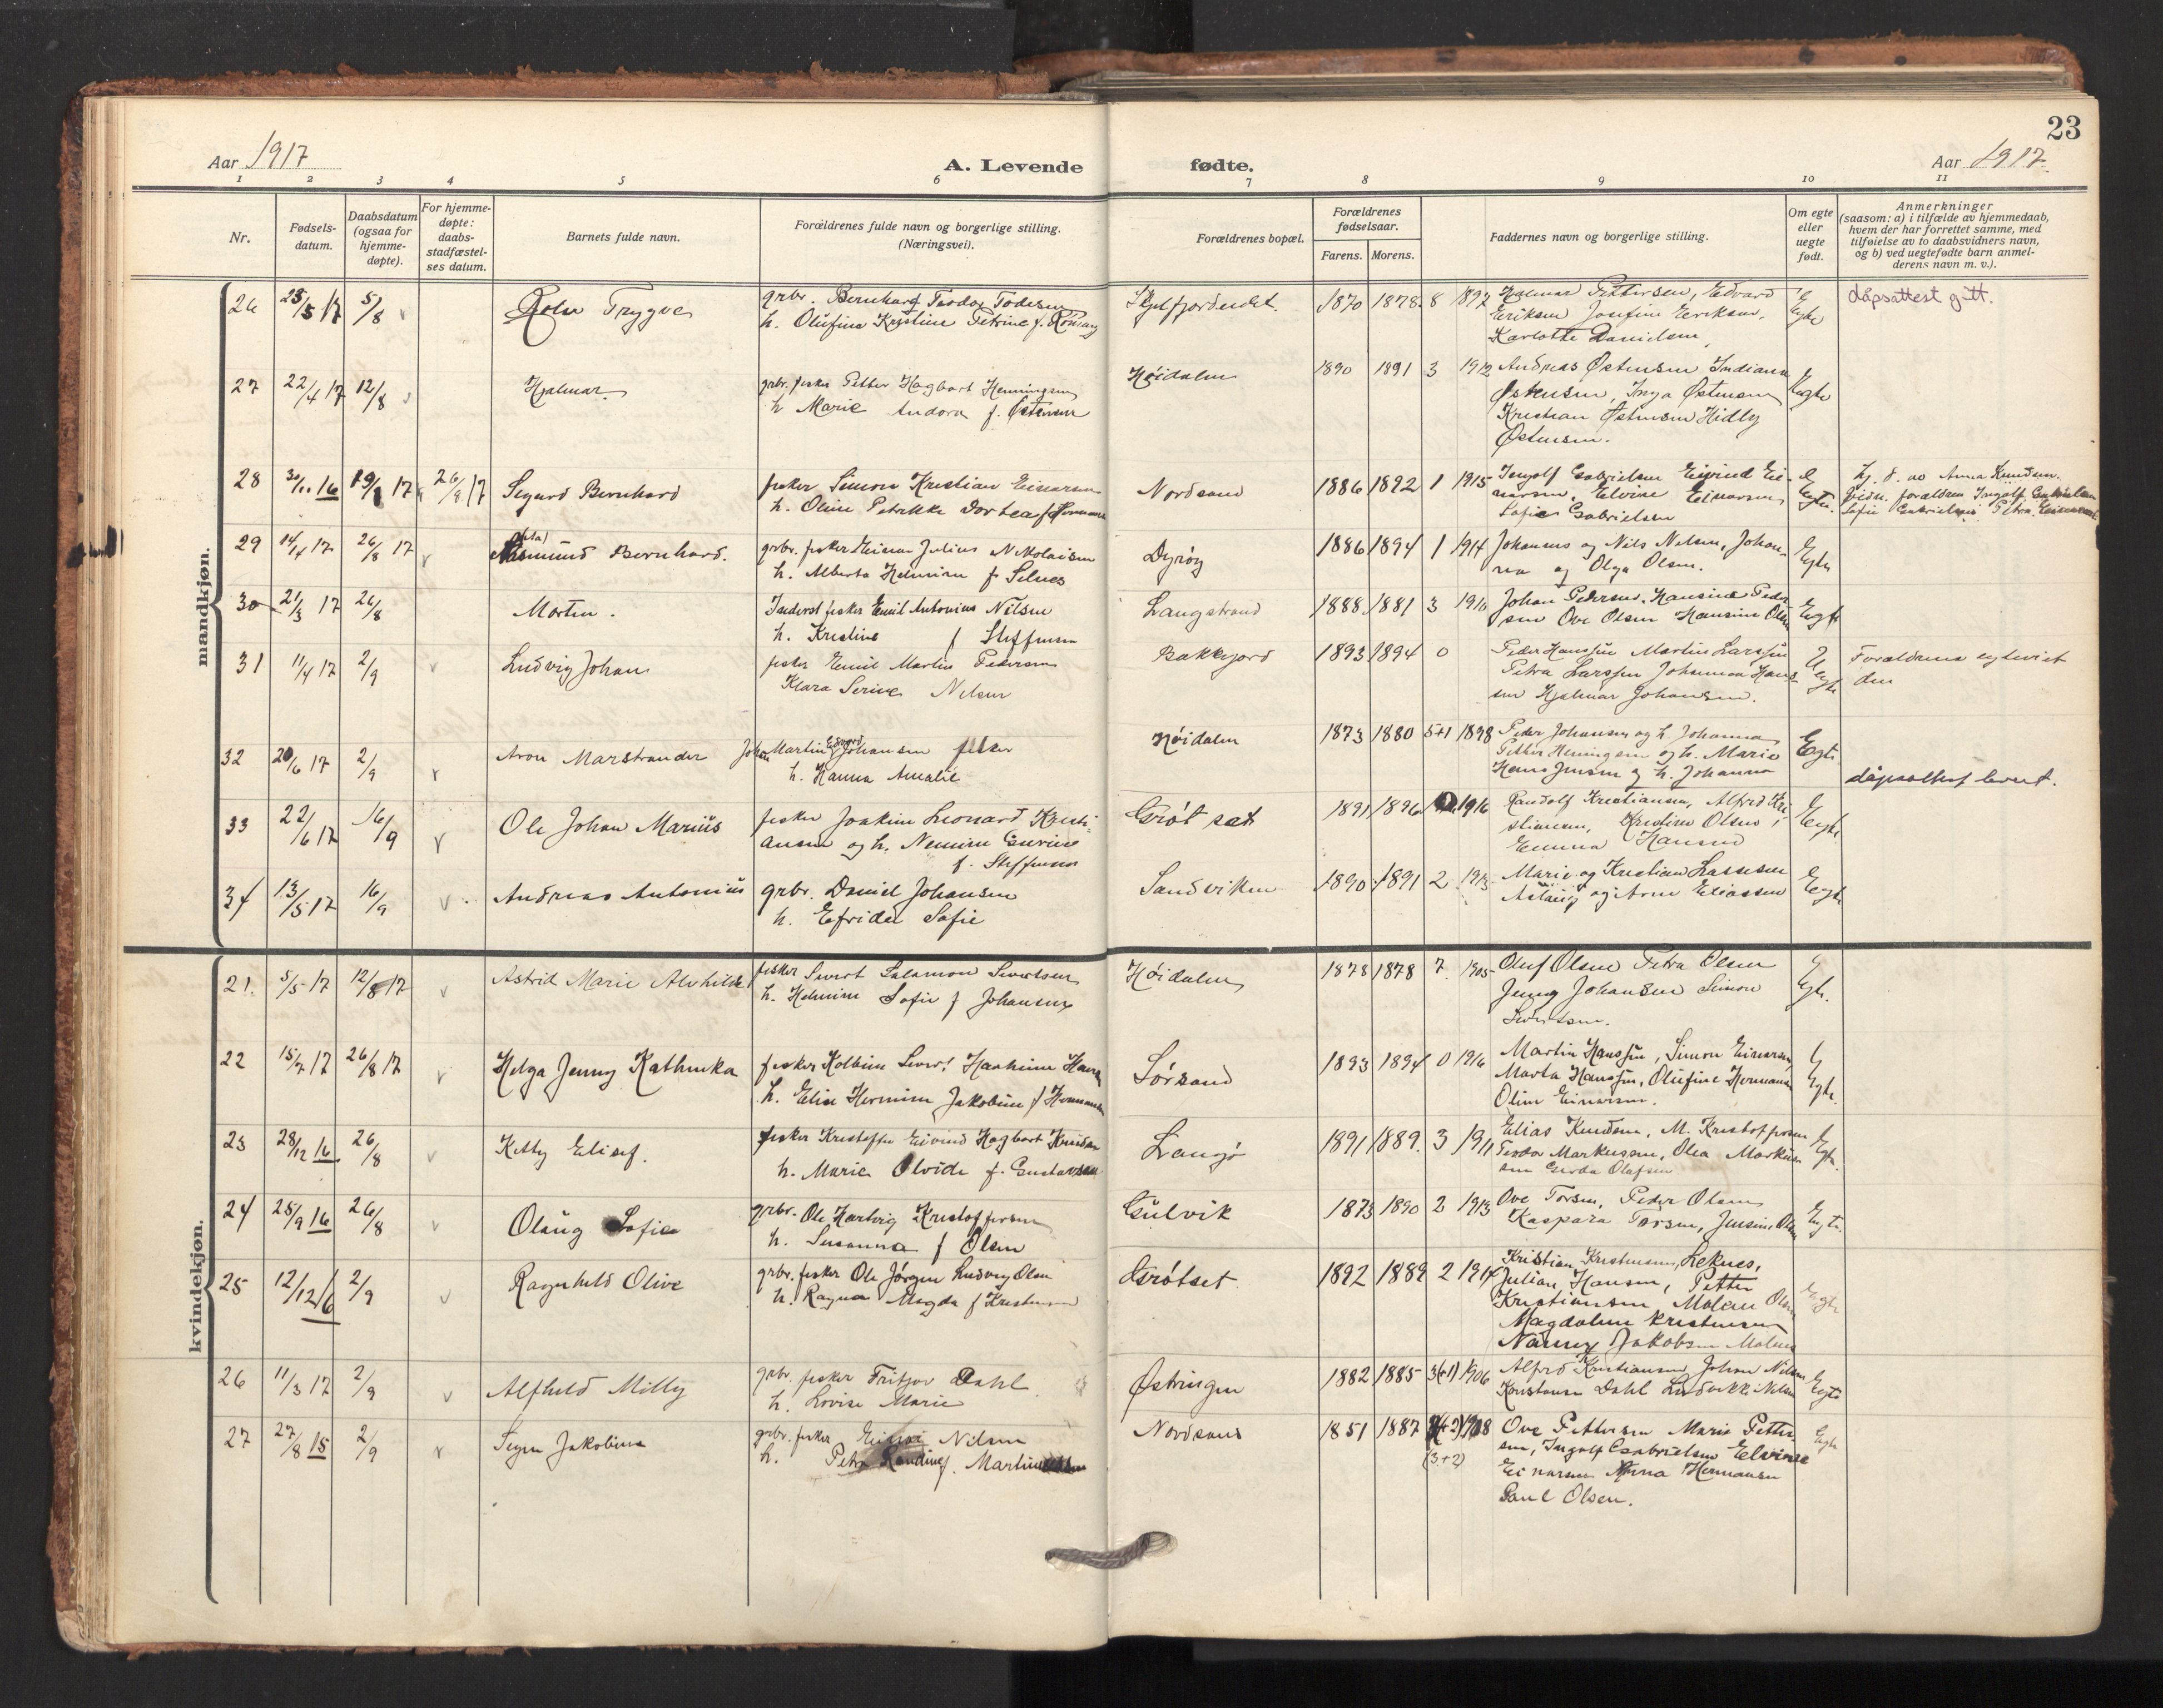 23
Aar 1917
A. Levende fødte.
Aar 1917
1 2 3 4 5 6 7 8 9 10 11
Nr.
Fødsels-
datum.
Daabsdatum
(ogsaa for
hjemme-
døpte).
For hjemme-
døpte:
daabs-
stadfæstel-
ses datum.
Barnets fulde navn.
Forældrenes fulde navn og borgerlige stilling.
(Næringsvei).
Forældrenes bopæl.
Forældrenes
fødselsaar.
Farens. Morens.
Faddernes navn og borgerlige stilling.
Om egte
eller
uegte
født.
Anmerkninger
(saasom: a) i tilfælde av hjemmedaab,
hvem der har forrettet samme, med
tilføielse av to daabsvidners navn,
og b) ved uegtefødte barn anmel-
derens navn m. v.).
mandkjøn.
26 5/8 Trygve grbr. Bernhard Teodor 1870 1878 8 1892 Hjalmar Pettersen, Edvard Egte dåpsattest gitt.
h. Olufine Kristine Petrine f.
Eriksen Josefine Eeriksen,
Karlotte Danielsen
27 22/4 17 12/8 Hjalmar grbr. fisker Petter Hagbart Henningsen Høidalen 1890 1891 3 1912 Andreas Østensen Indiana Egte
h. Marie Andora f. Østensen
Østensen, Inga Østensen
Kristian Østensen Hidly
Østensen.
28 16 17 26/8 17 Sigurd Bernhard fisker Simon Kristian Einarsen Nordsand 1886 1892 1 1915 Ingolf Gabrielsen Eivind Ei- Egte. Hj. d. av Anna Knudsen.
h. Oline Petrikke Dortea f.
narsen, Elvine Einarsen
Sofie Gabrielsen
forældren Ingolf Gabrielsen
Sofie Gabrielsen Petra Einarsen
29 14/4 17 26/8 17 Bernhard. grbr. fisker Einar Julius Nikolaisen Dyrøy 1886 1894 1 1914 Johannes og Nils Nelsen, Johan- Egte
h. Alberta Helmine f. Selnes
na og Olga Olsen.
30 21/3 17 26/8 Morten. Inderst fisker Emil Antonius Nilsen Langstrand 1888 1881 3 1916 Johan Pedersen, Hansine Peder- Egte
h. Kristine f Steffensen
sen Ove Olsen Hansine Olsen
31 11/4 17 2/9 Ludvig Johan fisker Emil Martin Pedersen Bakkejord 1893 1894 0 Peder Hanssen Martin Larssen Uegte Forældrene egteviet
Klara Serine Nelsen
Petra Larssen Johanna Hans-
sen Hjalmar Johansen.
32 20/6 17 2/9 Aron Marstrander Johan Martin Edvard Johansen fisker Høidalen 1873 1880 5+1 1898 Peder Johansen og h. Johanna Egte.
h. Hanna Amalie
Petter Heningsen og h. Marie
Hans Jensen og h. Johanna
dåpsattest levert.
33 22/6 17 16/9 Ole Johan Marius fisker Joakim Leonard Kristi- Grøtset 1891 1896 1916 Randolf Kristiansen, Alfred Kri- Egte
ansen og h. Nemine Gurine
f. Steffensen
stiansen, Kristine Olsen,
Emma Hansen
34 13/5 17 16/9 Andreas Antonius grbr. Daniel Johansen Sandviken 1890 1891 2 1913 Marie og Kristian Lassesen Egte
h. Efrida Sofie
Aslaug og Arne Eliassen
kvindekjøn.
21. 5/5 17 12/8 17 Astrid Marie Alvhilde fisker Sivert Salamon Sivertsen Høidalen 1878 1878 7 1905 Oluf Olsen Petra Olsen Egte.
h. Helmine Sofie f Johansen
Jenny Johansen Simon
Sivertsen.
22 15/7 17 26/8 17 Helga Jenny Kathinka fisker Kolbein Sivert Hansen Sørsand 1893 1894 0 1916 Martin Hanssen, Simon Einarsen, Egte.
h. Elise Hermine Jakobine f Hermansen
Marta Hanssen, Olufine Hermansen
Oline Einarsen.
23 28/12 16 26/8 Ketty Elisef. fisker Kristoffer Eivind Hagbart Knudsen Langø 1891 1889 3 1911 Elias Knudsen, M. Kristoffersen Egte.
h. Marie Olvide f. Gustavsen
Teodor Markussen, Olea Markus-
sen Gerda Olafsen
24 25/9 16 26/8 Olaug Sofie grbr. Ole Hartvig Kristoffersen Gulvik 1873 1890 2 1913 Ove Torsen, Peder Olsen Egte.
h. Susanna f Olsen
Kaspara Torsen, Jensine Olsen
25 12/12 16 2/9 Ragnhild Olive grbr. fisker Ole Jørgen Ludvig Olsen Grøtset 1892 1889 2 1914 Kristian Kristensen, Leknes, Egte
h. Ragna Magda f Kristensen
Julian Hansen, Petter
Kristiansen Malene Olsen
Magdalena Kristensen
Nanny Jakobsen
26 11/3 17 2/9 Alfhild Milly grbr. fisker Fritjov Dahl Østringen 1882 1885 3(+1) 1906 Alfred Kristiansen, Johan Nilsen Egte
h. Lovise Marie
Konstanse Dahl Ludvikke Nilsen
27 27/8 15 2/9 Signe Jakobine grbr. fisker Einar Nilsen Nordsand 1851 1887 (3+2) Ove Pettersen Marie Petter- Egte
h. Petra Randine f. Martinussen
sen, Ingolf Gabrielsen Elvine
Einarsen Anna Hermansen
Paul Olsen.